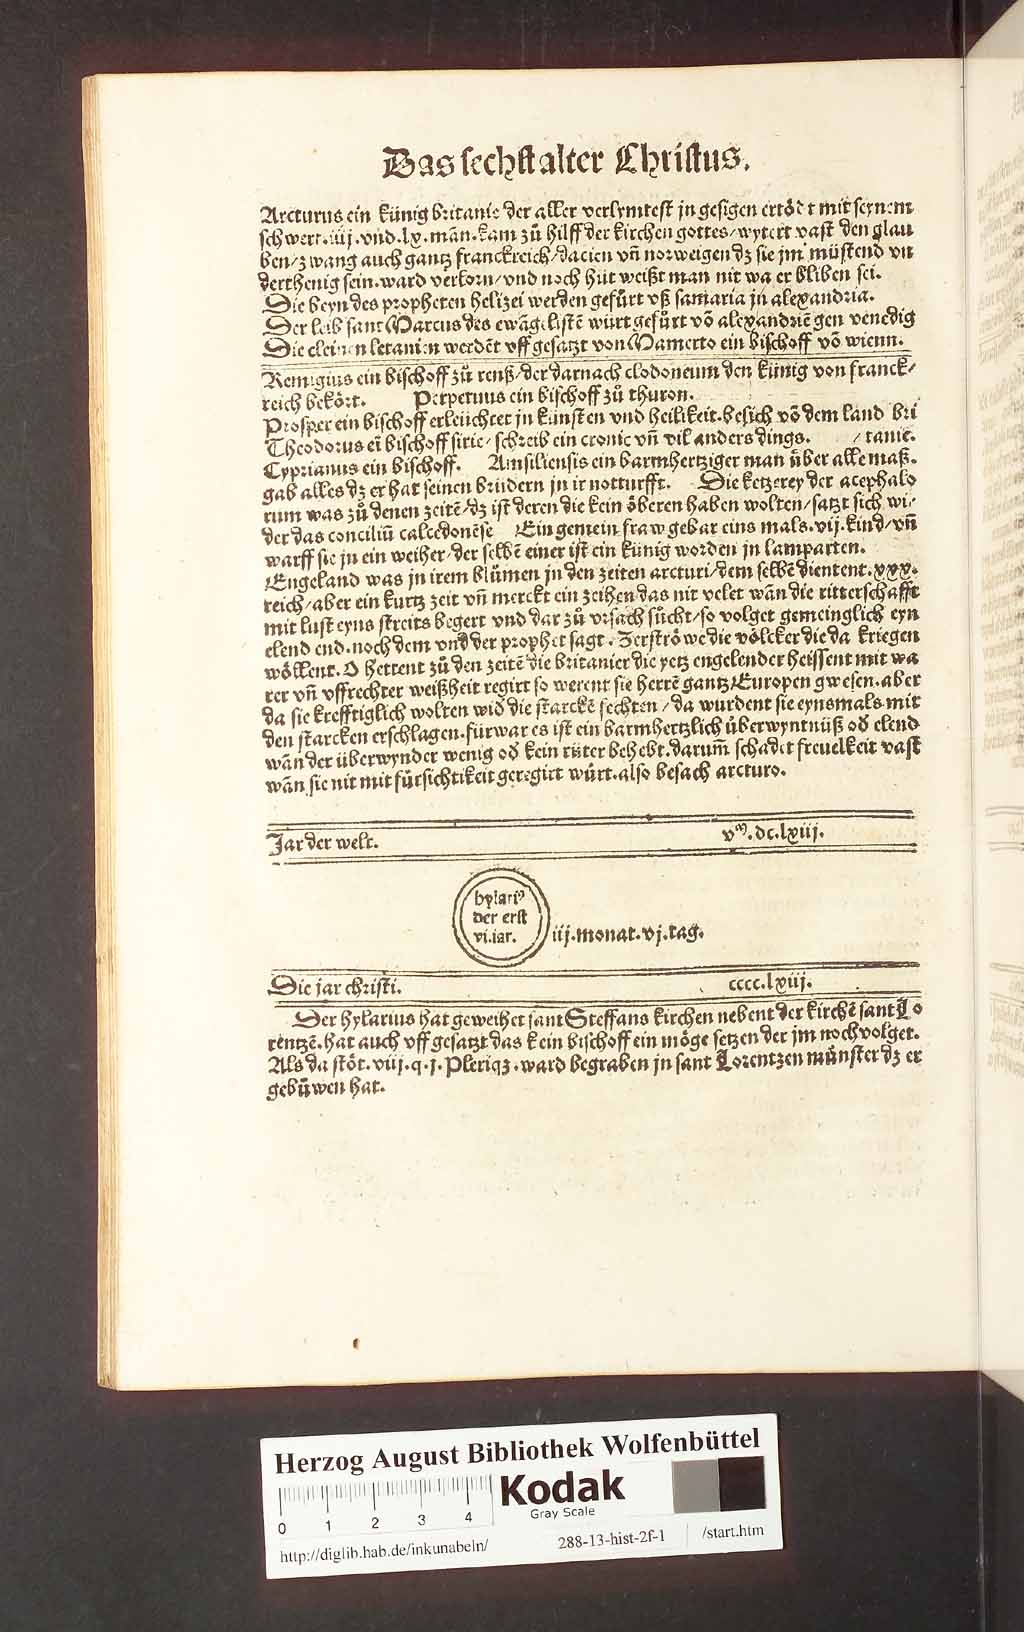 Das sechst alter Christus.
Arcturus ein künig britanie der aller verlymtest jn gesigen ertödt mit seynem
schwert.iiij.vnd.lx.mān.kam zů hilff der kirchen gottes/wytert vast den glau
ben/zwang auch gantz franckreich/dacien vn̄ norweigen dz sie jm müstend vn
derthenig sein.ward verlorn/vnd noch hüt weißt man nit wa er bliben sei.
Die beyn des propheten helizei werden gefürt vß samaria jn alexandria.
Der leib sant Marcus des ewāgelistē würt gefürt vō alexandriē gen venedig
Die cleinen letanien werdēt vff gesatzt von Mamerto ein bischoff vō wienn.
Remigius ein bischoff zů renß/der darnach clodoneum den künig von franck/
reich bekört. Perpetuus ein bischoff zů thuron.
Prosper ein bischoff erleüchtet jn künsten vnd heilikeit.besich vō dem land bri
Theodorus eī bischoff sirie/schreib ein cronic vn̄ vil anders dings. /tanie.
Cyprianus ein bischoff. Amsiliensis ein barmhertziger man über alle maß.
gab alles dz er hat seinen brüdern jn ir notturfft. Die ketzerey der acephalo
rum was zů denen zeitē/dz ist deren die kein öberen haben wolten/satzt sich wi/
der das conciliū calcedonēse Ein gemein fraw gebar eins mals.vij.kind/vn̄
warff sie jn ein weiher/der selbē einer ist ein künig worden jn lamparten.
Engeland was jn irem blümen jn den zeiten arcturi/dem selbē dientent.xxx.
reich/aber ein kurtz zeit vn̄ merckt ein zeihen das nit velet wān die ritterschafft
mit lust eyns streits begert vnd dar zů vrsach sůcht/so volget gemeinglich eyn
elend end.noch dem vnd der prophet sagt.Zerströwe die völcker die da kriegen
wöllent.O hettent zů den zeitē die britanier die yetz engelender heissent mit wa
rer vn̄ vffrechter weißheit regirt so werent sie herrē gantz Europen gwesen.aber
da sie krefftiglich wolten wid die starckē fechten/da wurdent sie eynsmals mit
den starcken erschlagen.fürwar es ist ein barmhertzlich überwyntnüß od elend
wān der überwynder wenig od kein rüter behebt.darum̄ schadet freuelkeit vast
wān sie nit mit fürsichtikeit geregirt würt.also besach arcturo.
Jar der welt. vᵐ.dc.lxiij.
hylariꝰ
der erst
vi.iar.
iij.monat.vj.tag.
Die jar christi. cccc.lxiij.
Der hylarius hat geweihet sant Steffans kirchen nebent der kirchē sant Lo
rentzē.hat auch vff gesatzt das kein bischoff ein möge setzen der jm noch volget.
Als da stöt.viij.q.j.Pleriqz.ward begraben jn sant Lorentzen münster dz er
gebůwen hat.
Herzog August Bibliothek Wolfenbüttel
Kodak
Gray Scale
0 1 2 3 4
http://diglib.hab.de/inkunabeln/ 288-13-hist-2f-1 /start.htm